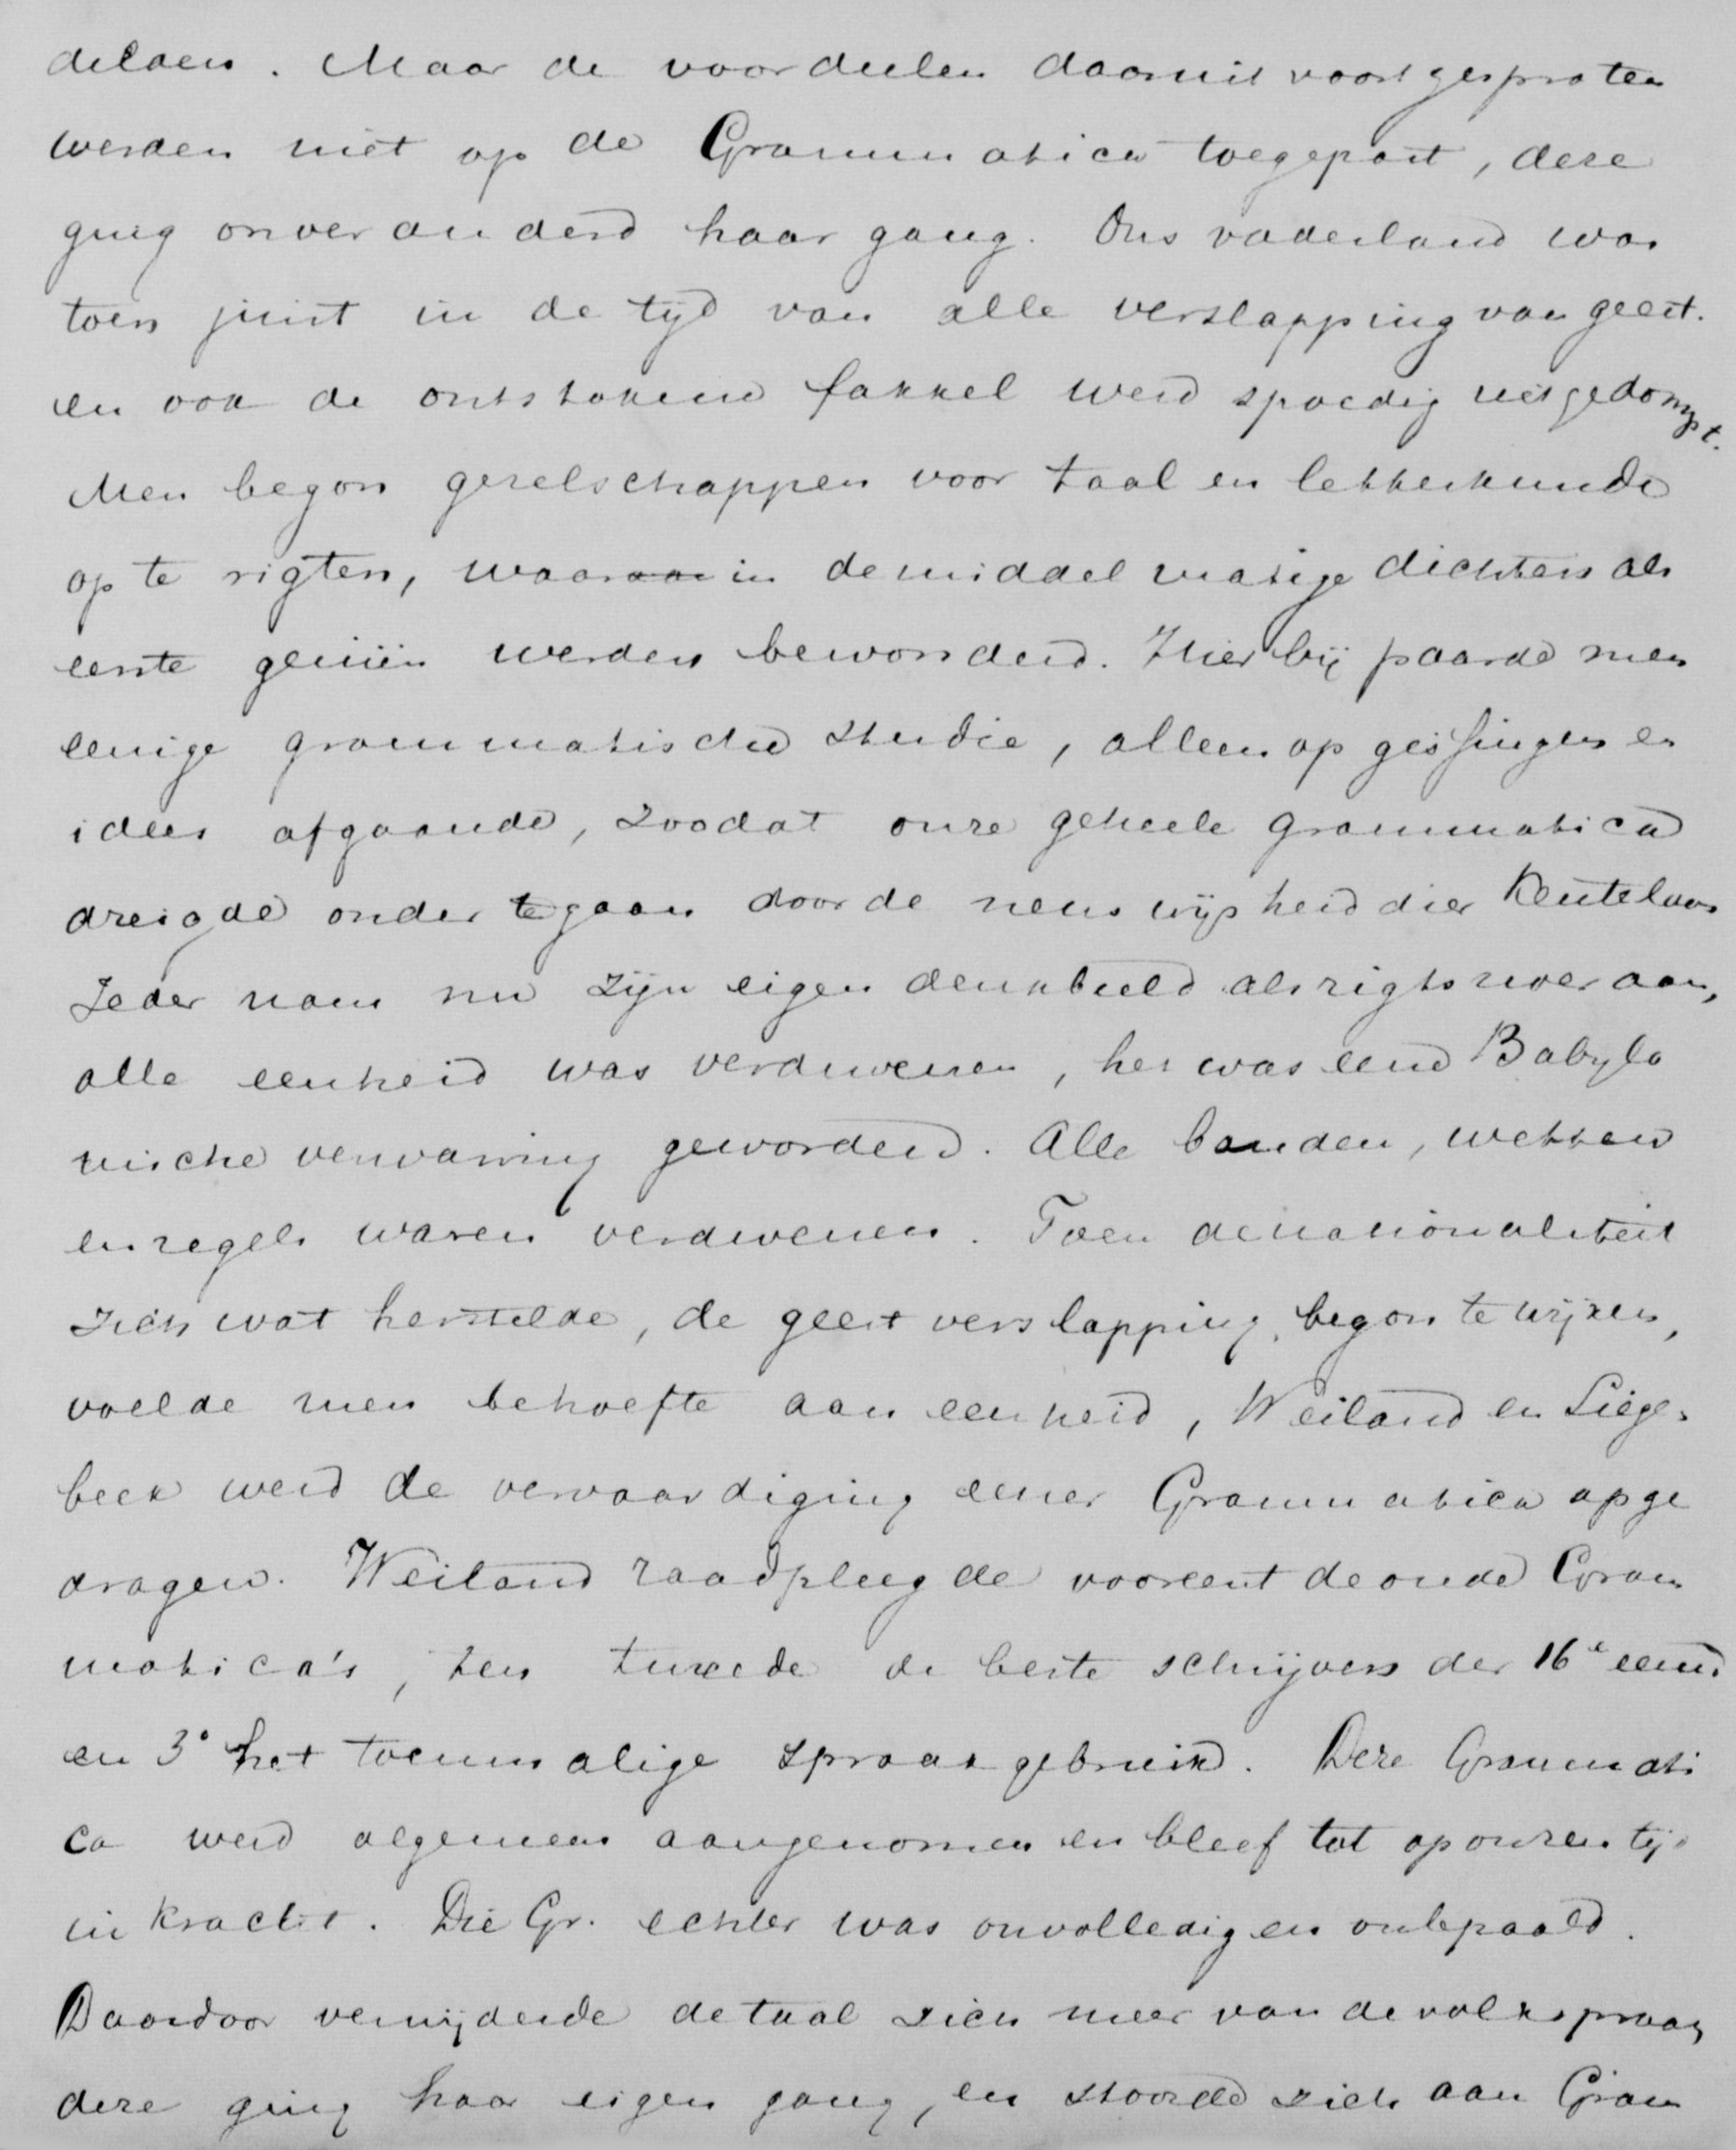 delven. Maar de voordeelen daaruit voortgesproten
werden niet op de Grammatica toegepast, deze
ging onveranderd haar gang. Ons vaderland was
toen juist in de tijd van alle verslapping van geest.
en ook de ontstokene fakkel werd spoedig uitgedompt.
Men begon gezelschappen voor taal en letterkunde
op te rigten, waarin de middelmatige dichters als
eerste genieën werden bewonderd. Hierbij paarde men
eenige grammatische studie, alleen op gissingen en
ideës afgaande, zoodat onze geheele grammatica
dreigde onder te gaan door de neuswijsheid dier Keutelaars
Ieder nam nu zijn eigen denkbeeld als rigtsnoer aan,
alle eenheid was verdwenen, het was eene Babylo
nische verwarring geworden. Alle banden, wetten
en regels waren verdwenen. Toen de nationaliteit
zich wat herstelde, de geest verslapping, begon te wijken,
voelde men behoefte aan eenheid, Weiland en Siege-
beek werd de vervaardiging eener Grammatica opge
dragen. Weiland raadpleegde vooreerst de oude Gram
matica's, ten tweede de beste schrijvers der 16e eeuw
en 3° het toenmalige spraakgebruik. Deze Grammati
ca werd algemeen aangenomen en bleef tot op onzen tijd
in kracht. Die Gr. echter was onvolledig en onbepaald.
Daardoor verwijderde de taal zich meer van de volksspraak,
deze ging haar eigen gang, en stoorde zich aan Gram